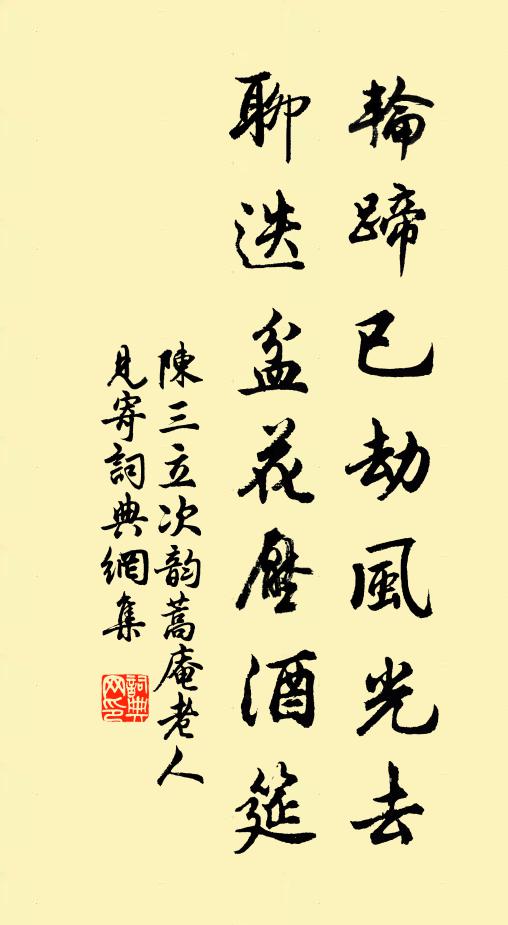 輪蹄已劫風光去
聊迭盆花壓酒筵
陳三立次韵蒿庵老人
見寄詞典網集
詞典网印